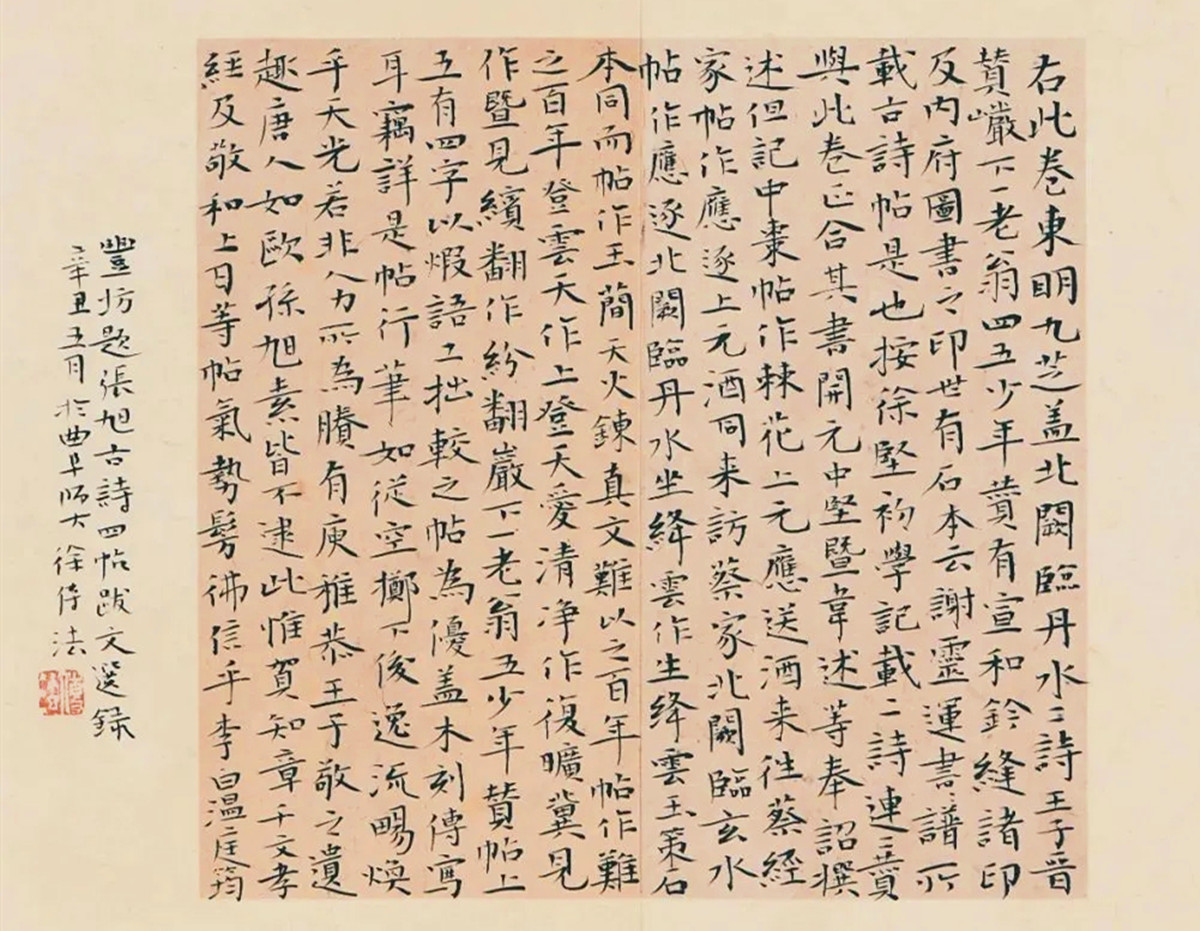 右此卷東明九芝盖北闕臨丹水二詩王子晉
賛巘下一老翁四五少年賛有宣和鈐縫諸印
及内府圖書之印世有石本云謝靈運書書譜所
載古詩帖是也按徐堅初學記載二詩連二賛
與此卷正合其書開元中堅暨韋述等奉詔撰
述但記中棗帖作棘花上元應送酒来徃蔡經
家帖作應逐上元酒同来訪蔡家北闕臨玄水
帖作應逐北闕臨丹水坐絳雲作生絳雲玉策石
本同而帖作玉簡天火鍊真文難以之百年帖作難
之百年登雲天作上登天愛清净作復曠冀見
作暨見繽翻作紛翻巖下一老翁五少年賛帖上
五有四字以煆語工拙較之帖為優盖木刻傳寫
耳竊詳是帖行筆如從空擲下俊逸流暢煥
乎天光若非人力所為賸有庾稚恭王子敬之遺
趣唐人如歐孫旭素皆不逮此惟賀知章千文孝
經及敬和上日等帖氣勢髣彿信乎李白温庭筠
豐坊題張旭古詩四帖跋文選録
辛丑五月於曲阜师大 徐侍法